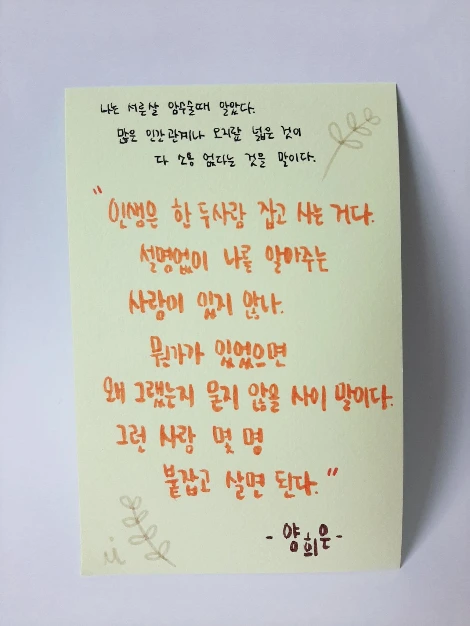 나는 서른살 암수술때 알았다.
많은 인간관계나 오지랖 넓은 것이
다 소용 없다는 것을 말이다.
"인생은 한 두사람 잡고 사는 거다.
설명없이 나를 알아주는
사람이 있지 않나.
뭔가가 있었으면
왜 그랬는지 묻지 않을 사이 말이다.
그런 사람 몇 명
붙잡고 살면 된다."
- 양희은 -